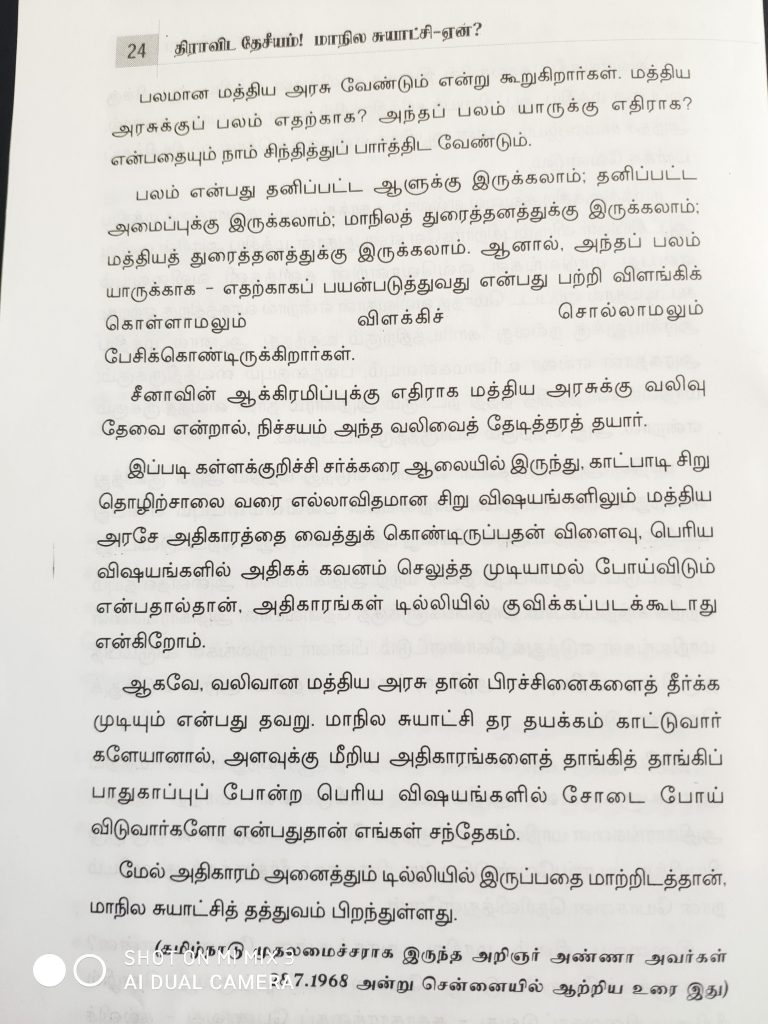 24 திராவிட தேசீயம்! மாநில சுயாட்சி-ஏன்?
பலமான மத்திய அரசு வேண்டும் என்று கூறுகிறார்கள். மத்திய
அரசுக்குப் பலம் எதற்காக? அந்தப் பலம் யாருக்கு எதிராக?
என்பதையும் நாம் சிந்தித்துப் பார்த்திட வேண்டும்.
பலம் என்பது தனிப்பட்ட ஆளுக்கு இருக்கலாம்; தனிப்பட்ட
அமைப்புக்கு இருக்கலாம்; மாநிலத் துரைத்தனத்துக்கு இருக்கலாம்;
மத்தியத் துரைத்தனத்துக்கு இருக்கலாம். ஆனால், அந்தப் பலம்
யாருக்காக – எதற்காகப் பயன்படுத்துவது என்பது பற்றி விளங்கிக்
கொள்ளாமலும் விளக்கிச் சொல்லாமலும்
பேசிக்கொண்டிருக்கிறார்கள்.
சீனாவின் ஆக்கிரமிப்புக்கு எதிராக மத்திய அரசுக்கு வலிவு
தேவை என்றால், நிச்சயம் அந்த வலிவைத் தேடித்தரத் தயார்.
இப்படி கள்ளக்குறிச்சி சர்க்கரை ஆலையில் இருந்து, காட்பாடி சிறு
தொழிற்சாலை வரை எல்லாவிதமான சிறு விஷயங்களிலும் மத்திய
அரசே அதிகாரத்தை வைத்துக் கொண்டிருப்பதன் விளைவு, பெரிய
விஷயங்களில் அதிகக் கவனம் செலுத்த முடியாமல் போய்விடும்
என்பதால்தான், அதிகாரங்கள் டில்லியில் குவிக்கப்படக்கூடாது
என்கிறோம்.
ஆகவே, வலிவான மத்திய அரசு தான் பிரச்சினைகளைத் தீர்க்க
முடியும் என்பது தவறு. மாநில சுயாட்சி தர தயக்கம் காட்டுவார்
களேயானால், அளவுக்கு மீறிய அதிகாரங்களைத் தாங்கித் தாங்கிப்
பாதுகாப்புப் போன்ற பெரிய விஷயங்களில் சோடை போய்
விடுவார்களோ என்பதுதான் எங்கள் சந்தேகம்.
மேல் அதிகாரம் அனைத்தும் டில்லியில் இருப்பதை மாற்றிடத்தான்,
மாநில சுயாட்சித் தத்துவம் பிறந்துள்ளது.
(தமிழ்நாடு முதலமைச்சராக இருந்த அறிஞர் அண்ணா அவர்கள்
.7.1968 அன்று சென்னையில் ஆற்றிய உரை இது)
SHOT ON MI MIX 3
AI DUAL CAMERA